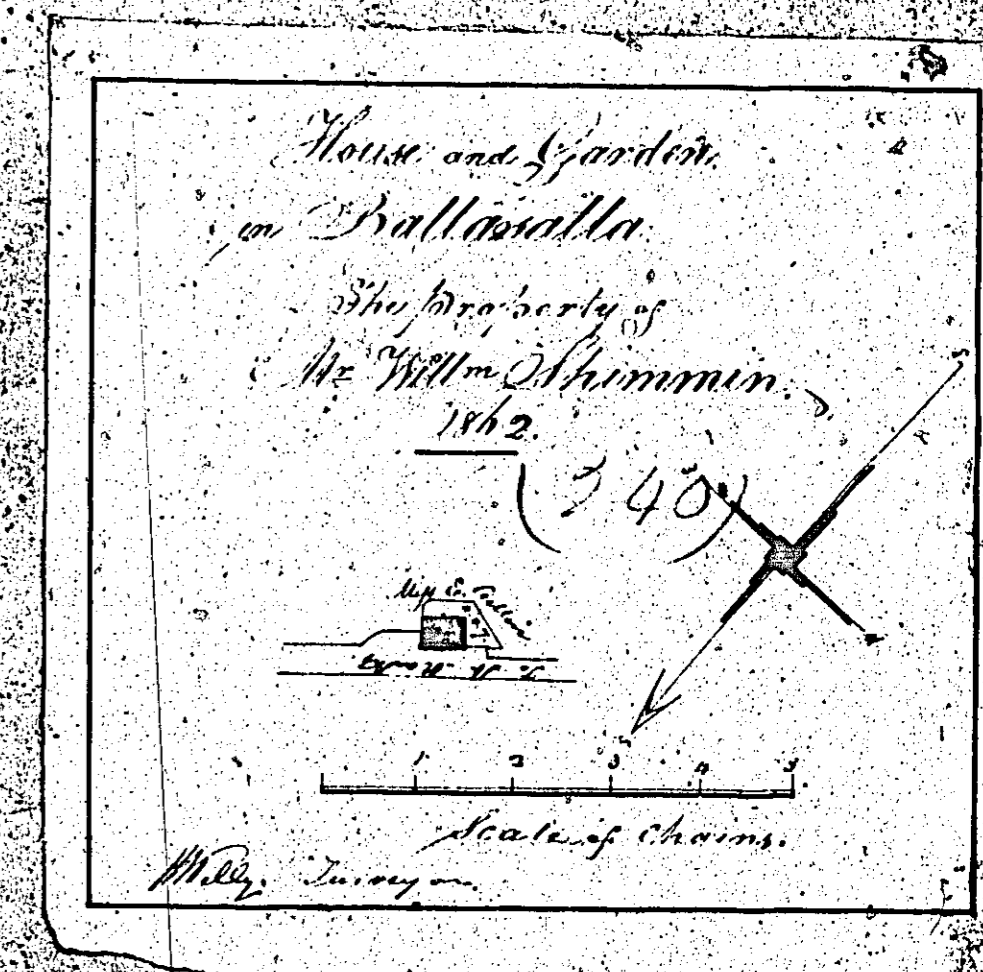 House and Garden
in Ballasalla
The Property of
Mr Willm Shimmin.
1862.
(340)
1 2 3 4 5
Scale of Chains.
Surveyor